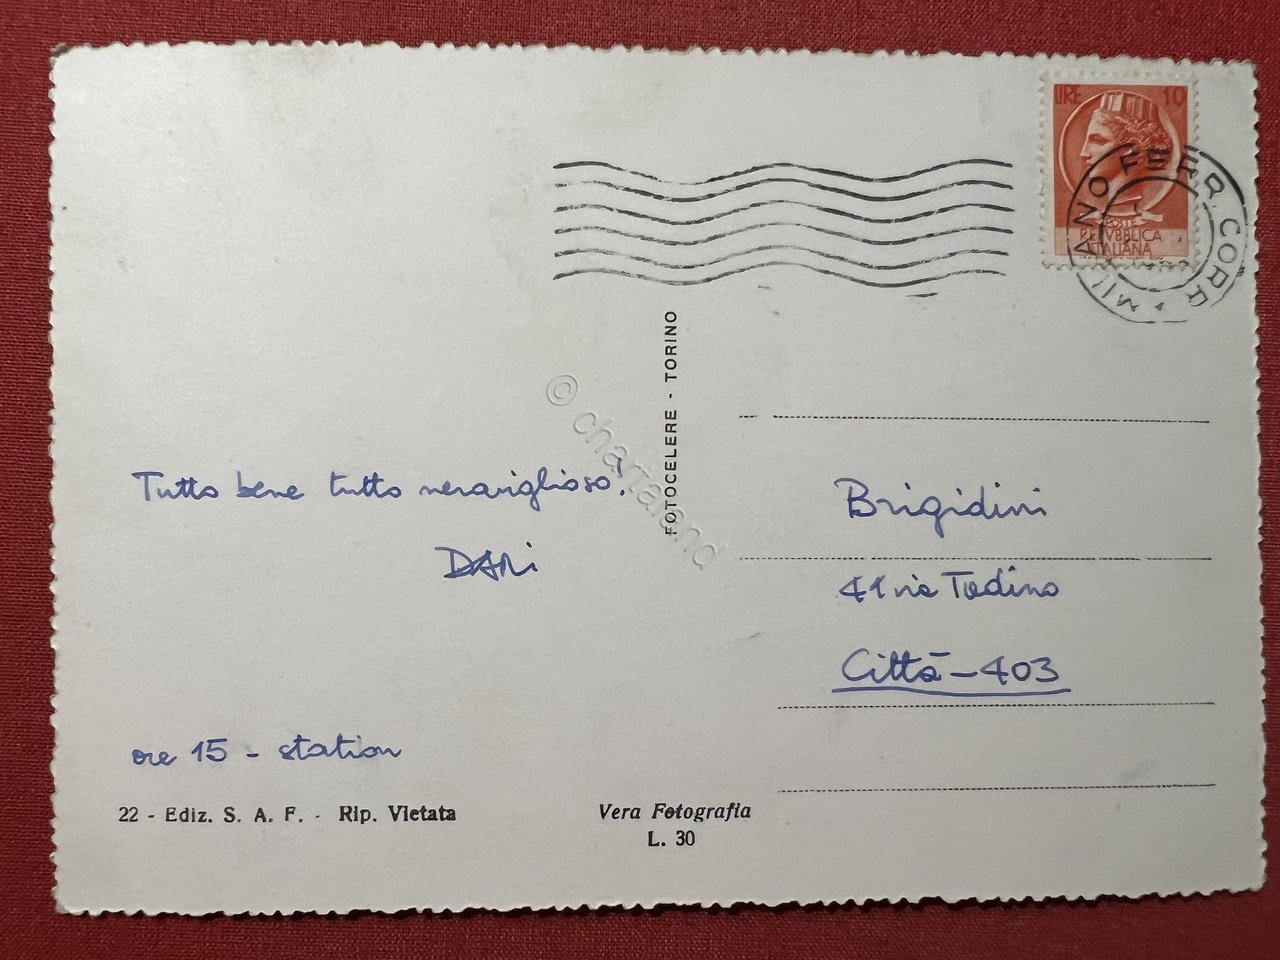 LIRE 10
POSTE
REPVBBLICA
ITALIANA
MILANO FERR. CORR.
FOTOCELERE - TORINO
© chartaland
Tutto bene tutto meraviglioso!
DARi
ore 15 - station
Brigidini
41 via Tadino
Città - 403
22 - Ediz. S. A. F. - Rip. Vietata
Vera Fotografia
L. 30